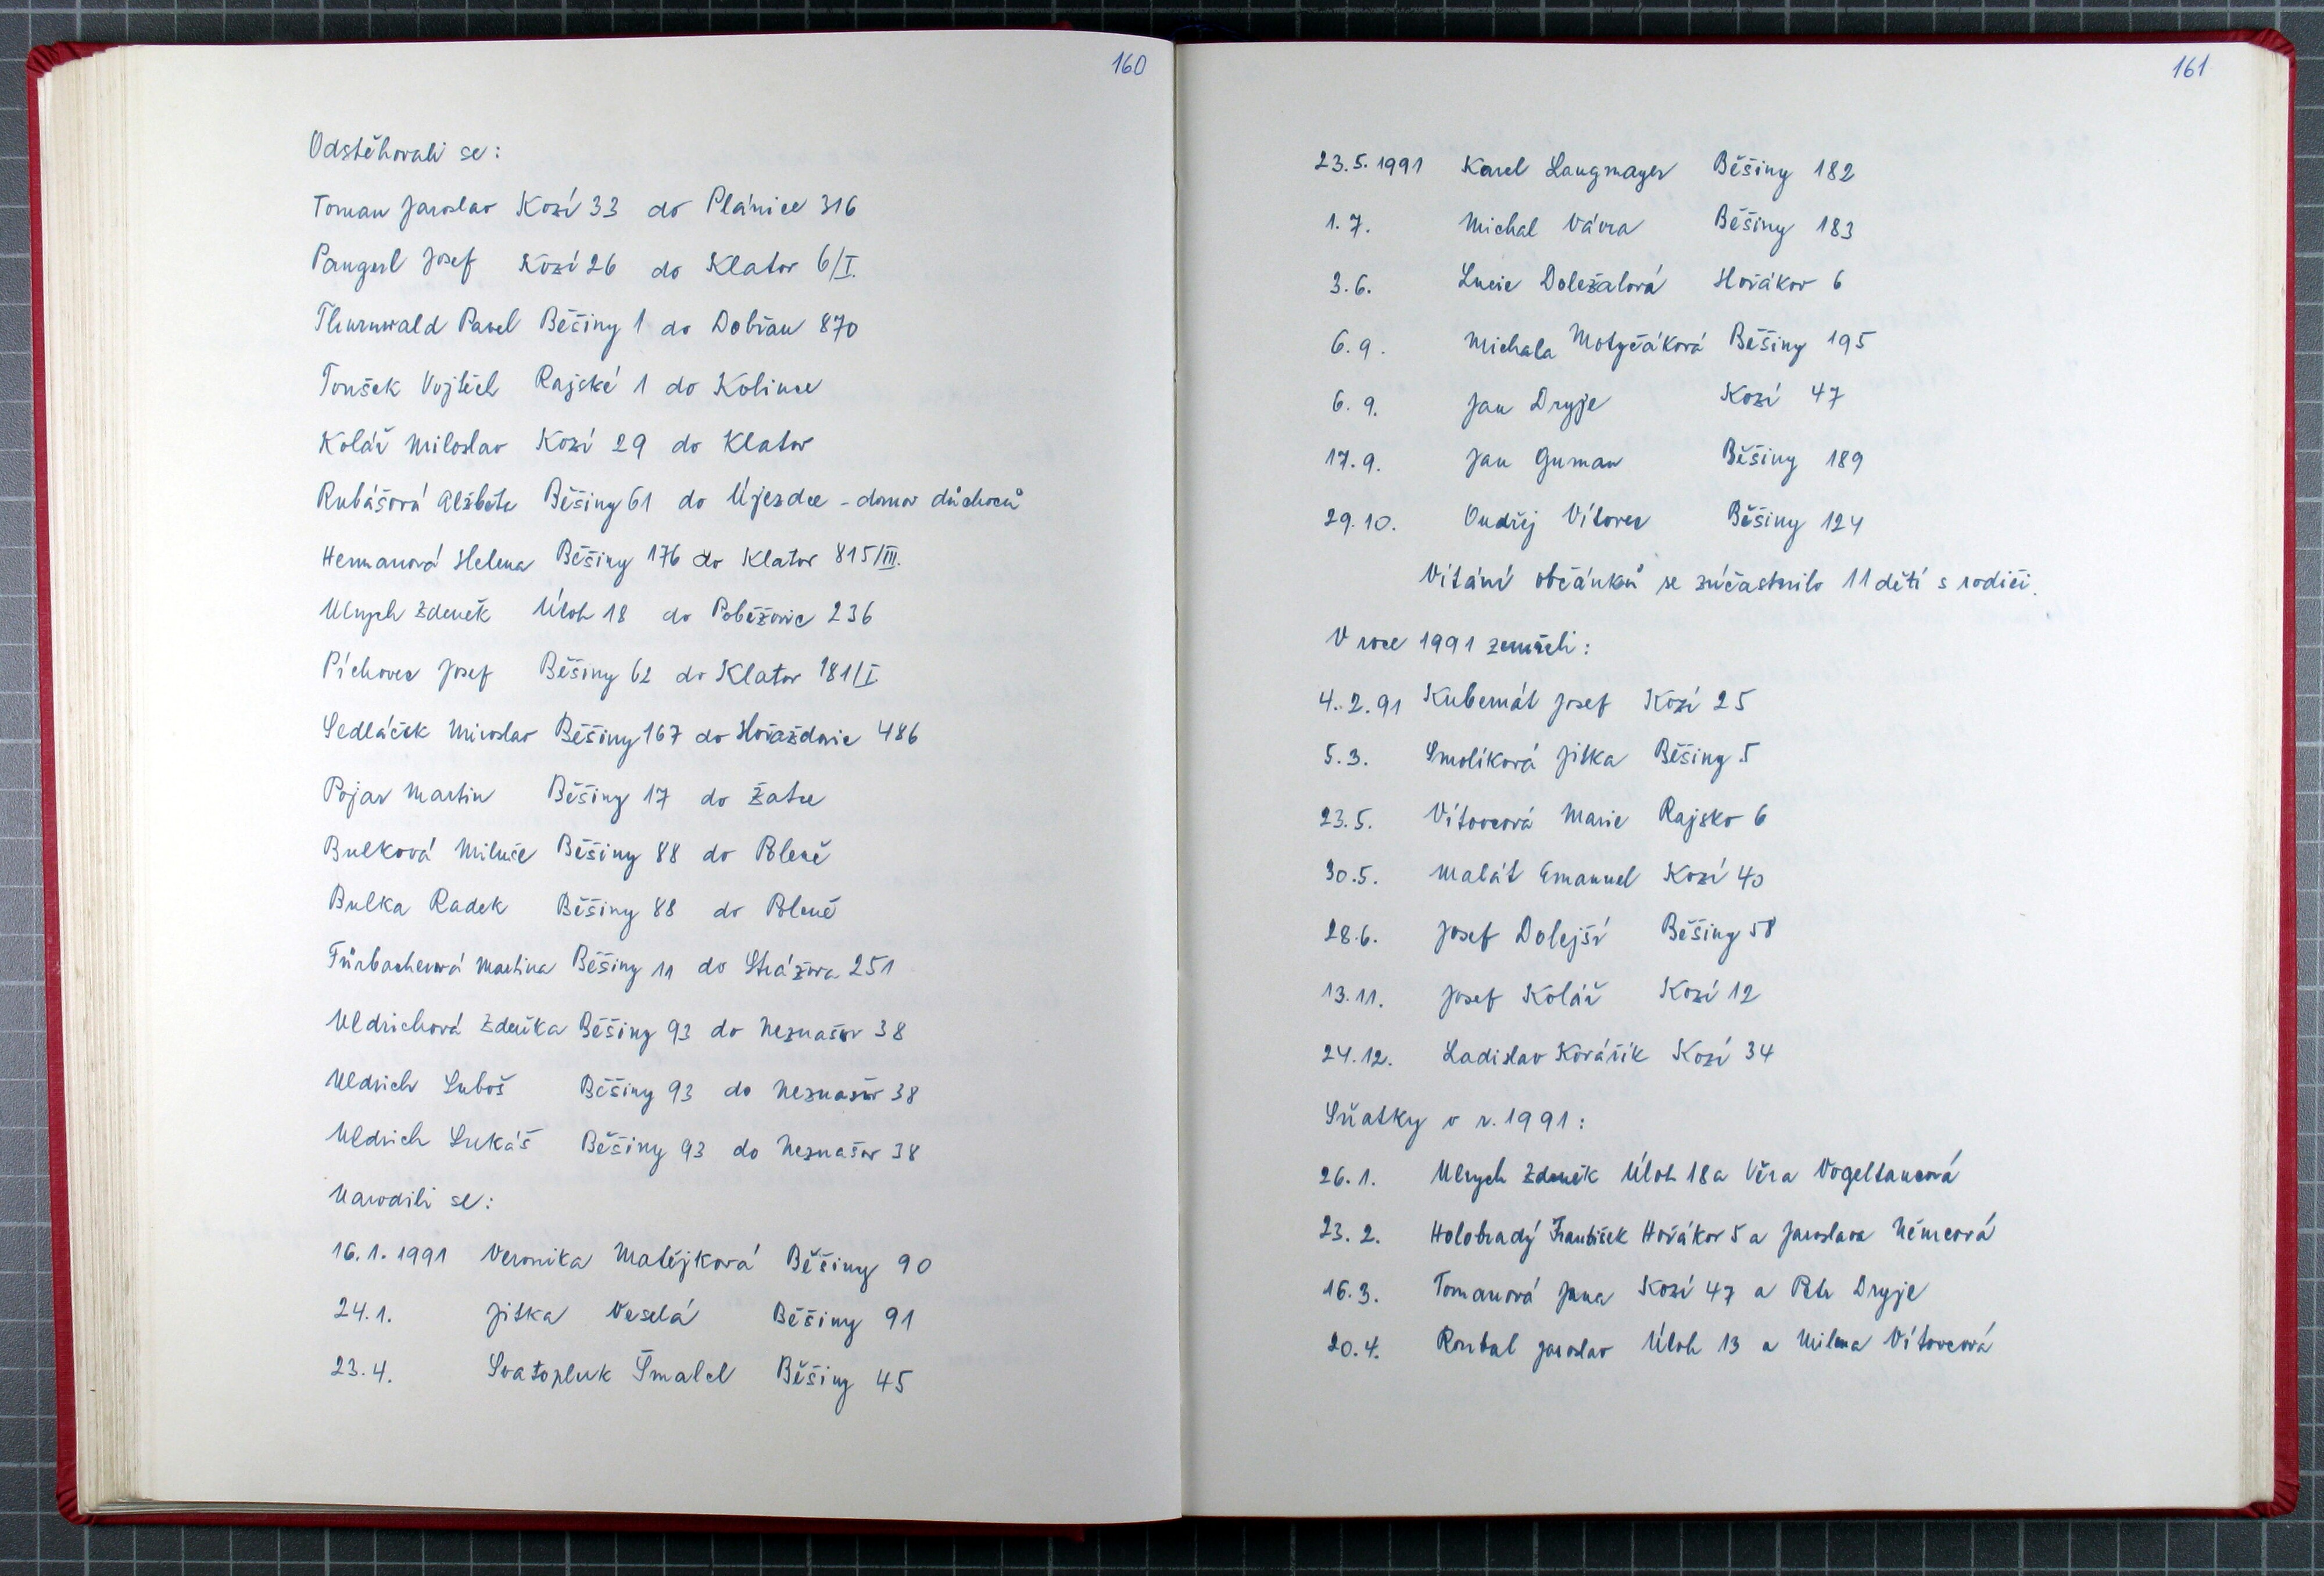 160
Odstěhovali se:
Toman Jaroslav Kozí 33 do Plánice 316
Pangerl Josef Kozí 26 do Klatov 6/I.
Thurnwald Pavel Běšiny 1 do Dobřan 870
Toušek Vojtěch Rajské 1 do Kolince
Kolář Miloslav Kozí 29 do Klatov
Rubášová Alžběta Běšiny 61 do Újezdce - domov důchodců
Hermanová Helena Běšiny 176 do Klatov 815/III.
Ulrych Zdeněk Úloh 18 do Poběžovic 236
Píchovec Josef Běšiny 62 do Klatov 181/I
Sedláček Miroslav Běšiny 167 do Horažďovic 486
Pojar Martin Běšiny 17 do Žatce
Bulková Miluše Běšiny 88 do Poleně
Bulka Radek Běšiny 88 do Poleně
Fürbacherová Martina Běšiny 11 do Strážova 251
Uldrichová Zdeňka Běšiny 93 do Neznašov 38
Uldrich Luboš Běšiny 93 do Neznašov 38
Uldrich Lukáš Běšiny 93 do Neznašov 38
Narodili se:
16.1.1991 Veronika Matějková Běšiny 90
24.1. Jitka Veselá Běšiny 91
23.4. Svatopluk Šmalcl Běšiny 45
161
23.5.1991 Karel Langmayer Běšiny 182
1.7. Michal Vávra Běšiny 183
3.6. Lucie Doležalová Hořákov 6
6.9. Michala Motyčáková Běšiny 195
6.9. Jan Dryje Kozí 47
17.9. Jan Guman Běšiny 189
29.10. Ondřej Vítovec Běšiny 124
Vítání občánků se zúčastnilo 11 dětí s rodiči.
V roce 1991 zemřeli:
4.2.91 Kubernát Josef Kozí 25
5.3. Smolíková Jitka Běšiny 5
23.5. Vítovcová Marie Rajsko 6
30.5. Malát Emanuel Kozí 40
28.6. Josef Dolejší Běšiny 58
13.11. Josef Kolář Kozí 12
24.12. Ladislav Kovářík Kozí 34
Sňatky v r. 1991:
26.1. Ulrych Zdeněk Úloh 18 a Věra Vogeltancová
23.2. Holobradý František Hořákov 5 a Jaroslava Němcová
16.3. Tomanová Jana Kozí 47 a Petr Dryje
20.4. Roubal Jaroslav Úloh 13 a Milena Vítovcová